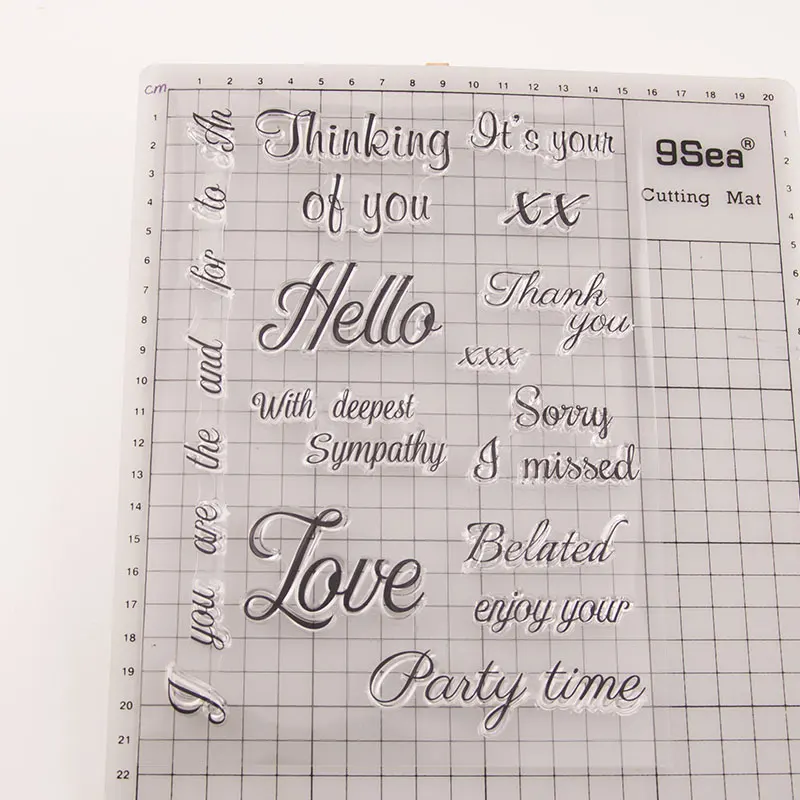 cm
1 2 3 4 5 6 7 8 9 10 11 12 13 14 15 16 17 18 19 20
1
2
3
4
5
6
7
8
9
10
11
12
13
14
15
16
17
18
19
20
21
22
I you are the and for to An
Thinking
of you
It's your
xx
Hello
Thank
you
xxx
With deepest
Sympathy
Sorry
I missed
Love
Belated
enjoy your
Party time
9Sea®
Cutting Mat
1
2
3
4
5
6
7